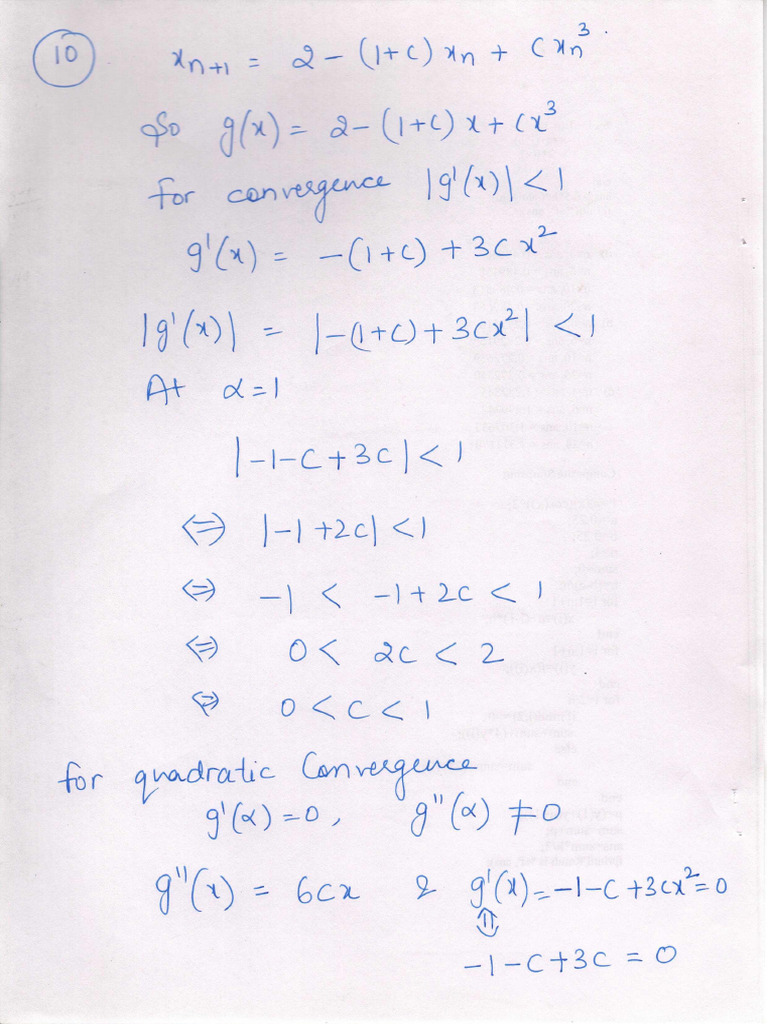 10
xₙ₊₁ = 2 - (1+c) xₙ + Cxₙ³.
So g(x) = 2-(1+c) x + cx³
for convergence |g'(x)| < 1
g'(x) = -(1+c) + 3cx²
|g'(x)| = |-(1+c) + 3cx²| < 1
At α=1
|-1-C+3C| < 1
⇔ |-1+2c| < 1
⇔ -1 < -1+2c < 1
⇔ 0 < 2c < 2
⇔ 0 < c < 1
for quadratic Convergence
g'(α)=0, g''(α) ≠ 0
g''(x) = 6cx & g'(x) = -1-c+3cx² = 0
⇕
-1-c+3c = 0